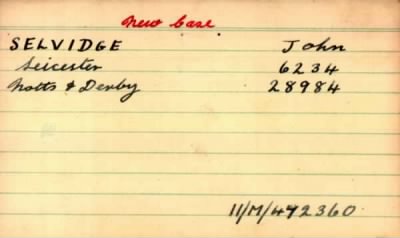 New Case.
SELVIDGE John
Leicester 6234
Notts & Derby 28984
11/M/472360.